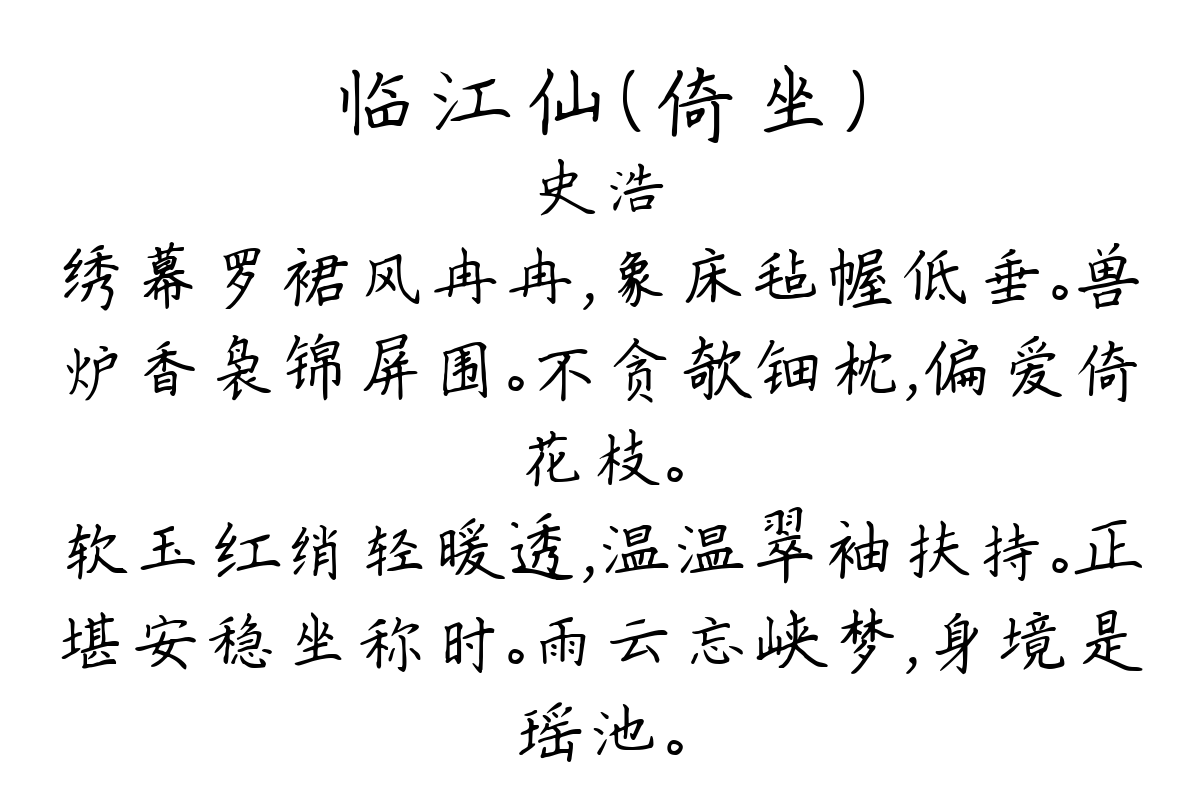 临江仙(倚坐)
史浩
绣幕罗裙风冉冉,象床毡幄低垂。兽
炉香袅锦屏围。不贪欹钿枕,偏爱倚
花枝。
软玉红绡轻暖透,温温翠袖扶持。正
堪安稳坐称时。雨云忘峡梦,身境是
瑶池。